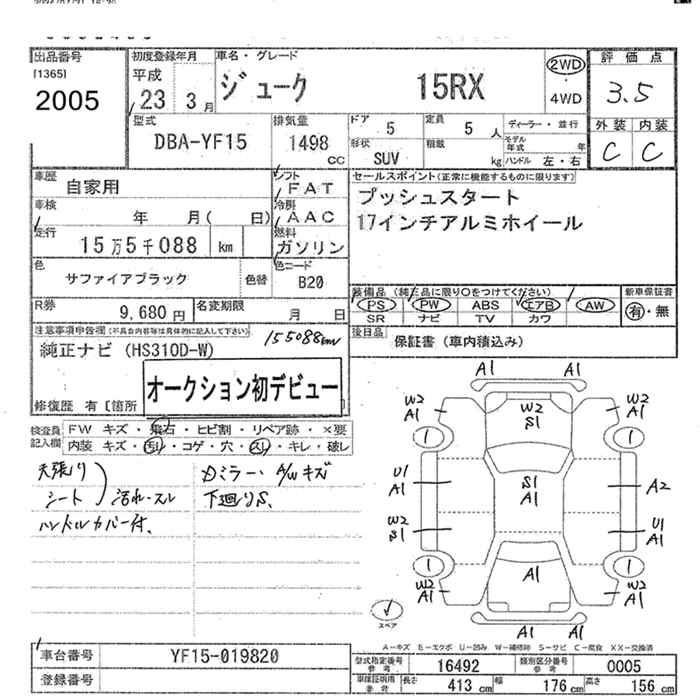 出品番号
[1365]
2005
初度登録年月
平成
23 3月
車名・グレード
ジューク 15RX
2WD
4WD
評価点
3.5
外装 内装
C C
型式
DBA-YF15
排気量
1498
cc
ドア 5
形状 SUV
定員 5 人
積載 kg
ディーラー・並行
モデル年式 年
ハンドル 左・右
車歴
自家用
シフト
FAT
車検
年 月( 日)
冷房
AAC
走行
15万5千088 km
燃料
ガソリン
色
サファイアブラック
色替
色コード
B20
R券
9,680円
名変期限
月 日
セールスポイント(正常に機能するものに限ります)
プッシュスタート
17インチアルミホイール
装備品(純正品に限り○をつけてください)
PS PW ABS エアB AW
SR ナビ TV カワ
新車保証書
有・無
後日品
保証書(車内積込み)
注意事項申告欄(不具合内容等は具体的に記入して下さい)
155088km
純正ナビ (HS310D-W)
オークション初デビュー
修復歴 有 [箇所
検査員記入欄
FW キズ・飛石・ヒビ割・リペア跡・×要
内装 キズ・汚レ・コゲ・穴・スレ・キレ・破レ
天張り
シート 汚れ・スレ
ハンドルカバー付、
Dミラー、A/Wキズ
下廻りS、
A1 A1
W2 A1
W2 S1
W2 A1
1 1
U1 A1
S1 A1
A2
W2 S1
U1 A1
1 1
A1
W2 A1
W2 A1
A1 A1
スペア
A-キズ E-エクボ U-凹み W-補修跡 S-サビ C-腐食 XX-交換済
車台番号
YF15-019820
登録番号
型式指定番号 参考
16492
類別区分番号 参考
0005
車検証明用 参考
長さ 413 cm
幅 176 cm
高さ 156 cm